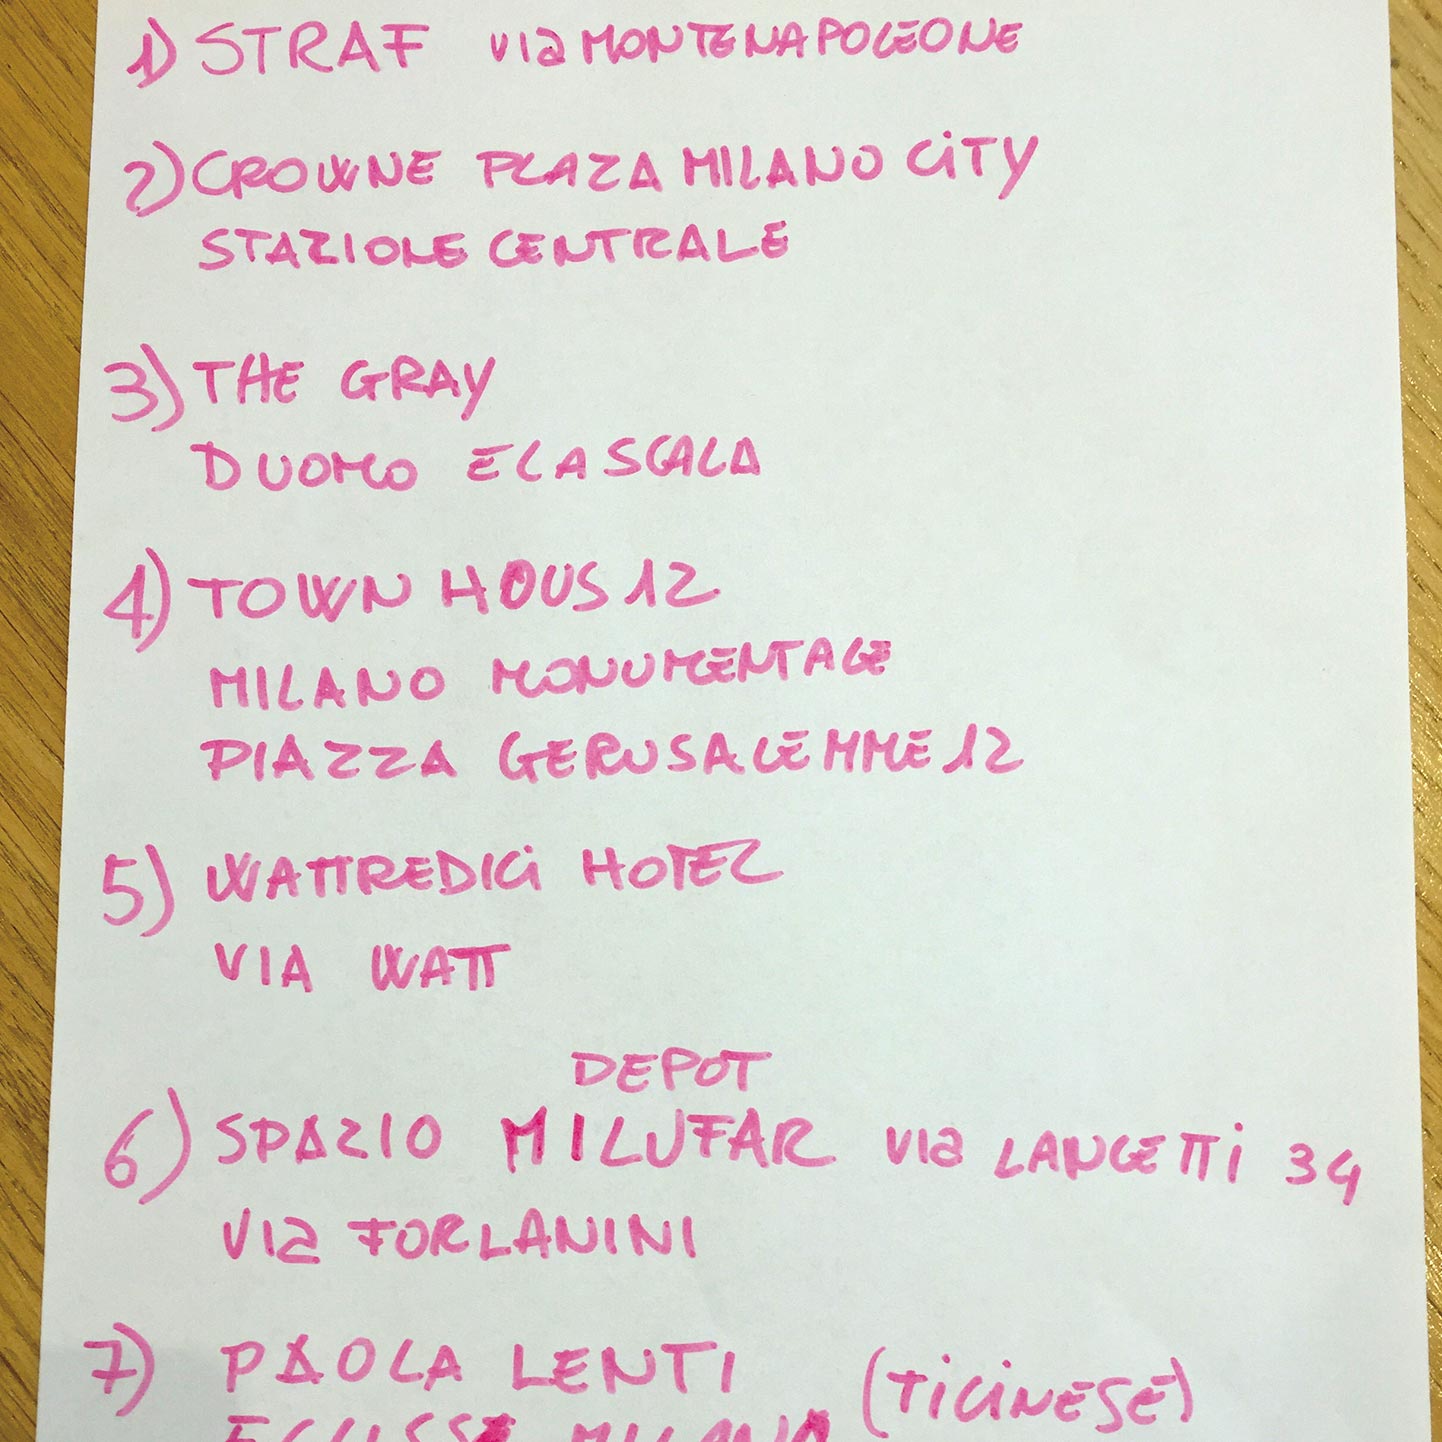 1) STRAF via MONTENAPOLEONE
2) CROWNE PLAZA MILANO CITY
STAZIONE CENTRALE
3) THE GRAY
DUOMO E LA SCALA
4) TOWN HOUS 12
MILANO MONUMENTALE
PIAZZA GERUSALEMME 12
5) WATTREDICI HOTEL
VIA WATT
DEPOT
6) SPAZIO MILUFAR via LANCETTI 34
via FORLANINI
7) PAOLA LENTI (TICINESE)
ECLISSE MILANO